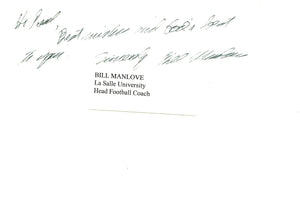 Best wishes and God's best
to you Sincerely Bill Manlove
BILL MANLOVE
La Salle University
Head Football Coach